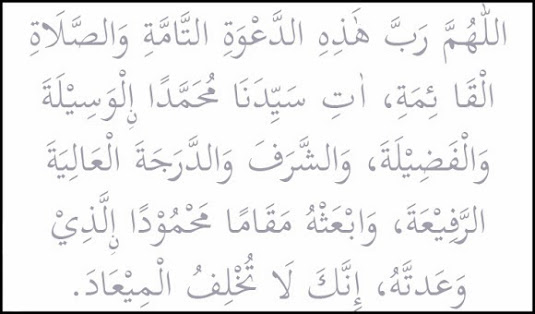 اَللّٰهُمَّ رَبَّ هٰذِهِ الدَّعْوَةِ التَّامَّةِ وَالصَّلَاةِ
الْقَا ئِمَةِ، اٰتِ سَيِّدَنَا مُحَمَّدًا اِۨلْوَسِيْلَةَ
وَالْفَضِيْلَةَ، وَالشَّرَفَ وَالدَّرَجَةَ الْعَالِيَةَ
الرَّفِيْعَةَ، وَابْعَثْهُ مَقَامًا مَحْمُوْدًا اِۨلَّذِيْ
وَعَدتَّهُ، إِنَّكَ لَا تُخْلِفُ الْمِيْعَادَ.